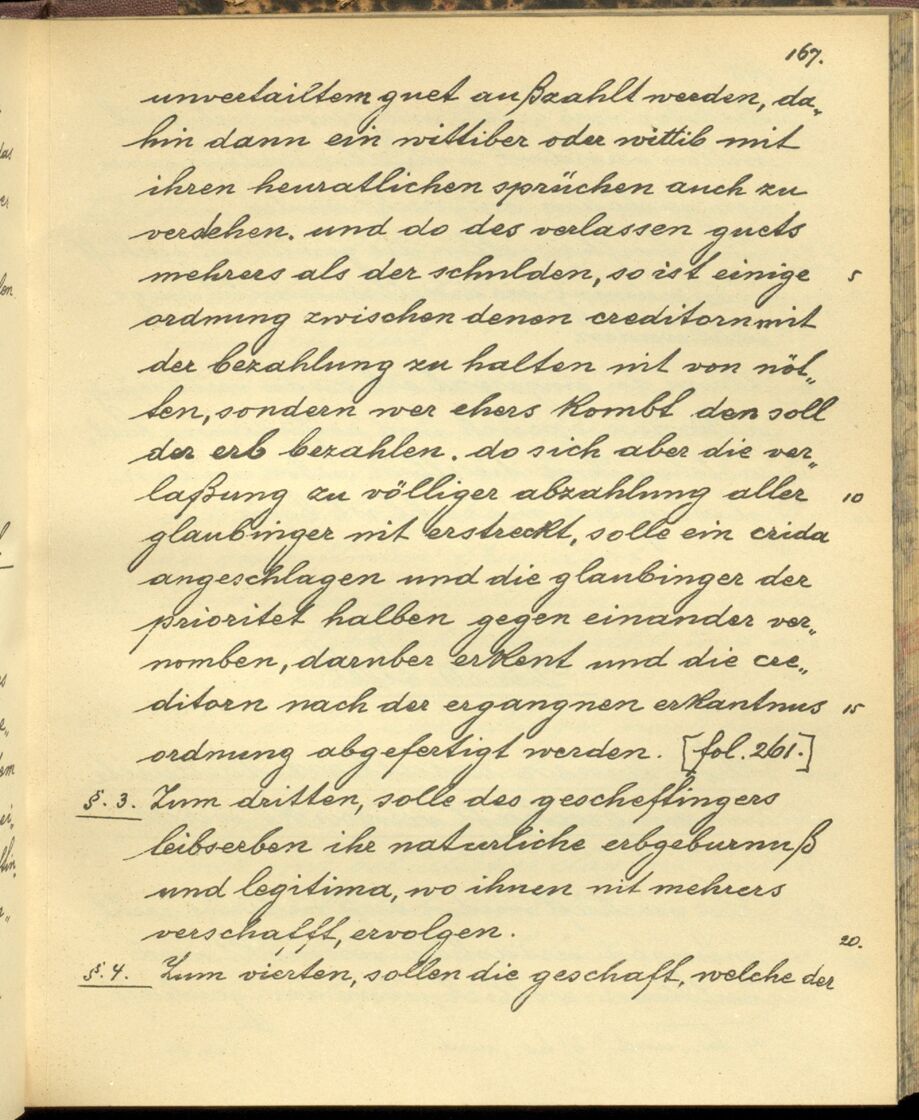 167.
unvertailtem guet außzahlt werden, da„
hin dann ein wittiber oder wittib mit
ihren heuratlichen sprüchen auch zu
verstehen. und do des verlassen guets
mehrers als der schulden, so ist einige 5
ordnung zwischen denen creditorn mit
der bezahlung zu halten nit von nöt„
ten, sondern wer ehers kombt den soll
der erb bezahlen. do sich aber die ver„
laßung zu völliger abzahlung aller 10
glaubinger nit erstreckt, solle ein crida
angeschlagen und die glaubinger der
prioritet halben gegen einander ver„
nomben, daruber erkent und die cre„
ditorn nach der ergangnen erkantnus 15
ordnung abgefertigt werden. [fol. 261.]
§. 3. Zum dritten, solle des gescheftingers
leibserben ihr naturliche erbgeburnuß
und legitima, wo ihnen nit mehrers
verschafft, ervolgen. 20.
§. 4. Zum vierten, sollen die geschaft, welche der